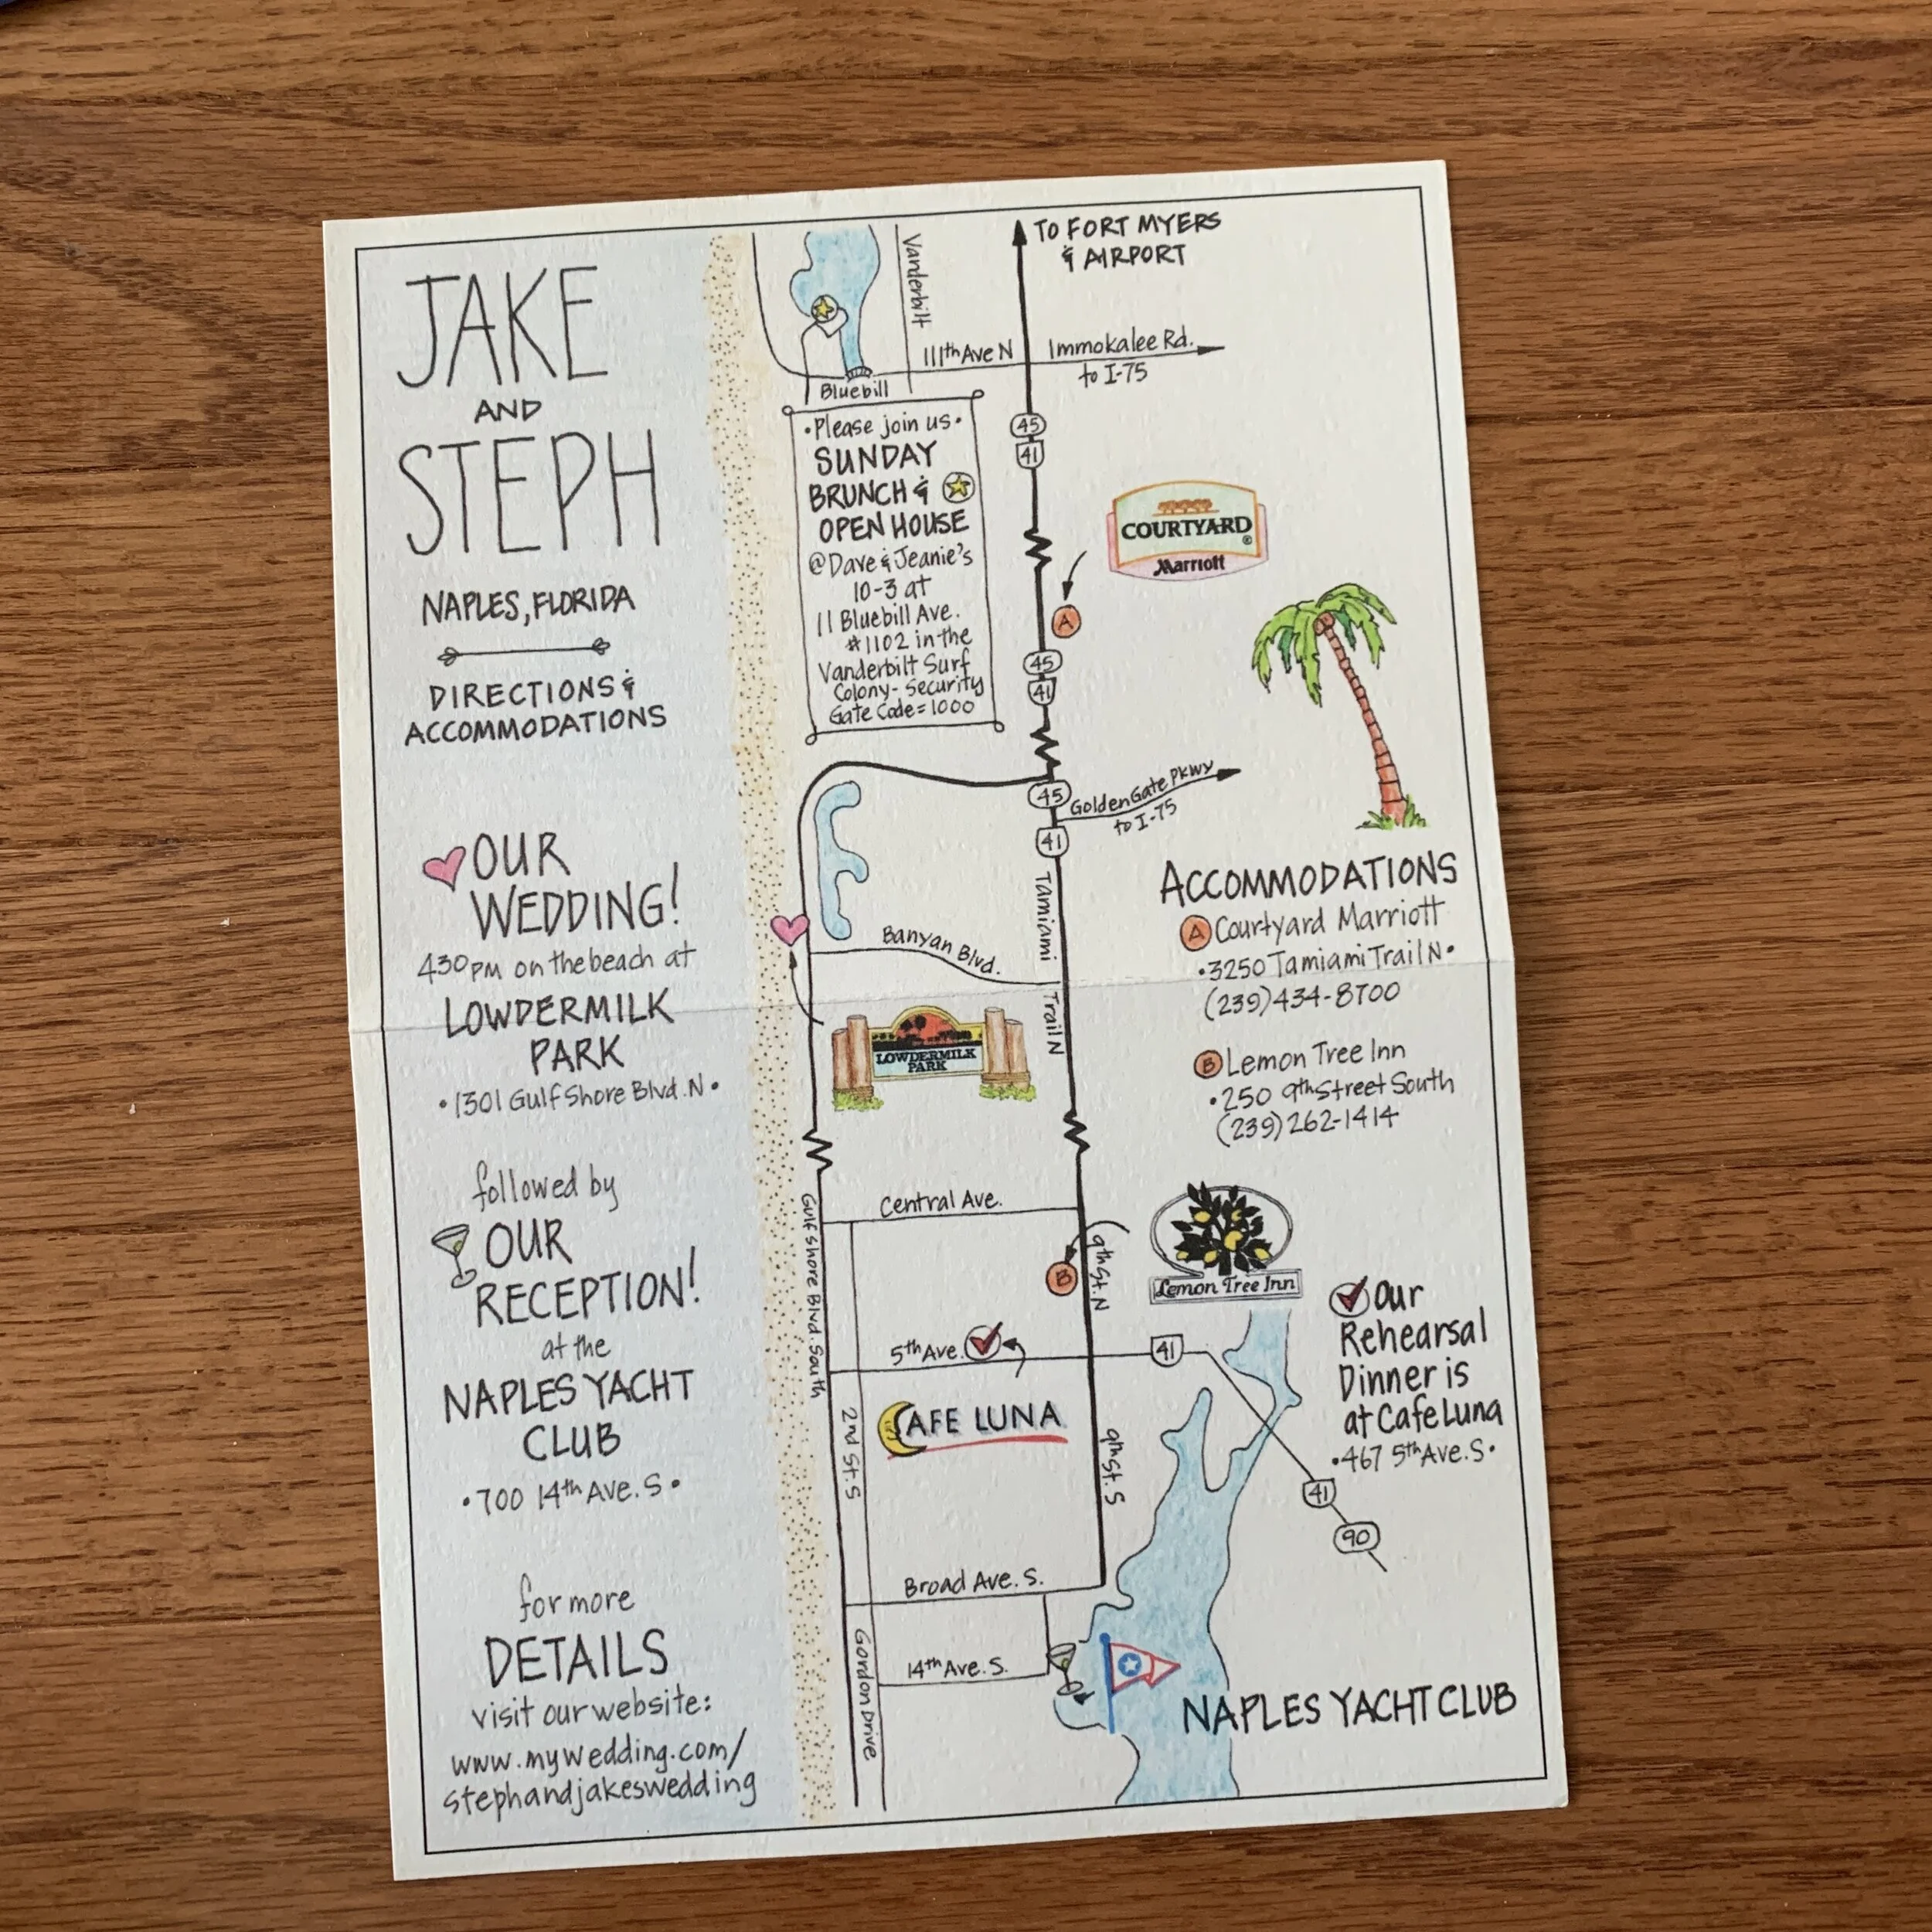 JAKE
AND
STEPH
NAPLES, FLORIDA
DIRECTIONS &
ACCOMMODATIONS
OUR
WEDDING!
430PM on the beach at
LOWDERMILK
PARK
•1301 Gulf Shore Blvd. N•
followed by
OUR
RECEPTION!
at the
NAPLES YACHT
CLUB
•700 14th Ave. S•
for more
DETAILS
visit our website:
www.mywedding.com/
stephandjakeswedding
Vanderbilt
TO FORT MYERS
& AIRPORT
111th Ave N
Immokalee Rd.
to I-75
Bluebill
•Please join us•
SUNDAY
BRUNCH &
OPEN HOUSE
@Dave & Jeanie's
10-3 at
11 Bluebill Ave.
#1102 in the
Vanderbilt Surf
Colony- Security
Gate Code=1000
45
41
COURTYARD®
Marriott
A
45
41
45
Golden Gate Pkwy
to I-75
41
Tamiami
Trail N
Banyan Blvd.
LOWDERMILK
PARK
ACCOMMODATIONS
A Courtyard Marriott
•3250 Tamiami Trail N•
(239)434-8700
B Lemon Tree Inn
•250 9th Street South
(239)262-1414
Central Ave.
Gulf Shore Blvd. South
9th St. N
B
Lemon Tree Inn
5th Ave.
41
Our
Rehearsal
Dinner is
at Cafe Luna
•467 5th Ave. S•
2nd St. S
CAFE LUNA
9th St. S
41
90
Broad Ave. S.
14th Ave. S.
Gordon Drive
NAPLES YACHT CLUB